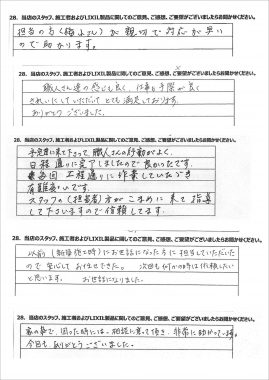 28. 当店のスタッフ、施工者およびLIXIL製品に関してのご意見、ご感想、ご要望がございましたらお聞かせください。
担当の方(梅よさん)が親切で対応が早い
ので助かります。
28. 当店のスタッフ、施工者およびLIXIL製品に関してのご意見、ご感想、ご要望がございましたらお聞かせください。
職人さん達の感じも良く、仕事も手際が良く
きれいにしていただいてとても満足しております。
ありがとうございました。
28. 当店のスタッフ、施工者およびLIXIL製品に関してのご意見、ご感想、ご要望がございましたらお聞かせください。
予定通りに来て下さって職人さんの行動がよく
日程通りに完了しましたので良かったです。
毎回工程通りに作業していただき
有難いです。
スタッフの(担当者)方がこまめに来て指導
して下さいますので信頼してます。
28. 当店のスタッフ、施工者およびLIXIL製品に関してのご意見、ご感想、ご要望がございましたらお聞かせください。
以前(新築施工時)にお世話になった方に担当していただいた
ので安心してお任せできた。次回も何かの時は依頼したい
と思います。お世話になりました。
28. 当店のスタッフ、施工者およびLIXIL製品に関してのご意見、ご感想、ご要望がございましたらお聞かせください。
家の事で、困った時には、相談に乗って頂き、非常に助かってます。
今回も、ありがとうございました。